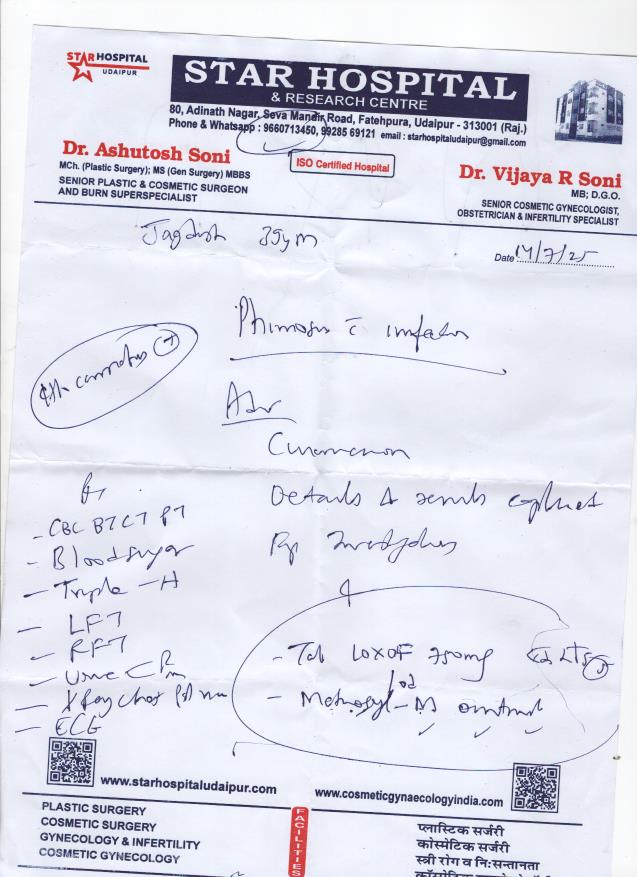 STAR HOSPITAL
UDAIPUR
STAR HOSPITAL
& RESEARCH CENTRE
80, Adinath Nagar, Seva Mandir Road, Fatehpura, Udaipur - 313001 (Raj.)
Phone & Whatsapp : 9660713450, 99285 69121 email : starhospitaludaipur@gmail.com
ISO Certified Hospital
Dr. Ashutosh Soni
MCh. (Plastic Surgery); MS (Gen Surgery) MBBS
SENIOR PLASTIC & COSMETIC SURGEON
AND BURN SUPERSPECIALIST
Dr. Vijaya R Soni
MB; D.G.O.
SENIOR COSMETIC GYNECOLOGIST,
OBSTETRICIAN & INFERTILITY SPECIALIST
Jagdish 35y m
Date 14/7/25
Phimosis c̄
Adv
Details & explained
- CBC BT CT PT
- Blood sugar
- Triple - H
- LFT
- RFT
- Urine
- X Ray Chest PA
- ECG
- Tab LOXOF 750mg
od
- - M ointment
www.starhospitaludaipur.com
www.cosmeticgynaecologyindia.com
PLASTIC SURGERY
COSMETIC SURGERY
GYNECOLOGY & INFERTILITY
COSMETIC GYNECOLOGY
FACILITIES
प्लास्टिक सर्जरी
कॉस्मेटिक सर्जरी
स्त्री रोग व निःसन्तानता